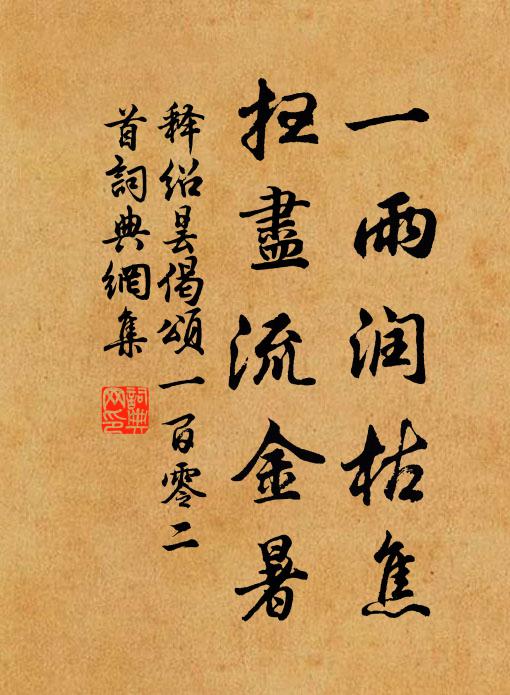 一雨润枯焦
扫盡流金暑
释绍昙偈頌一百零二
首詞典網集
詞典
网印